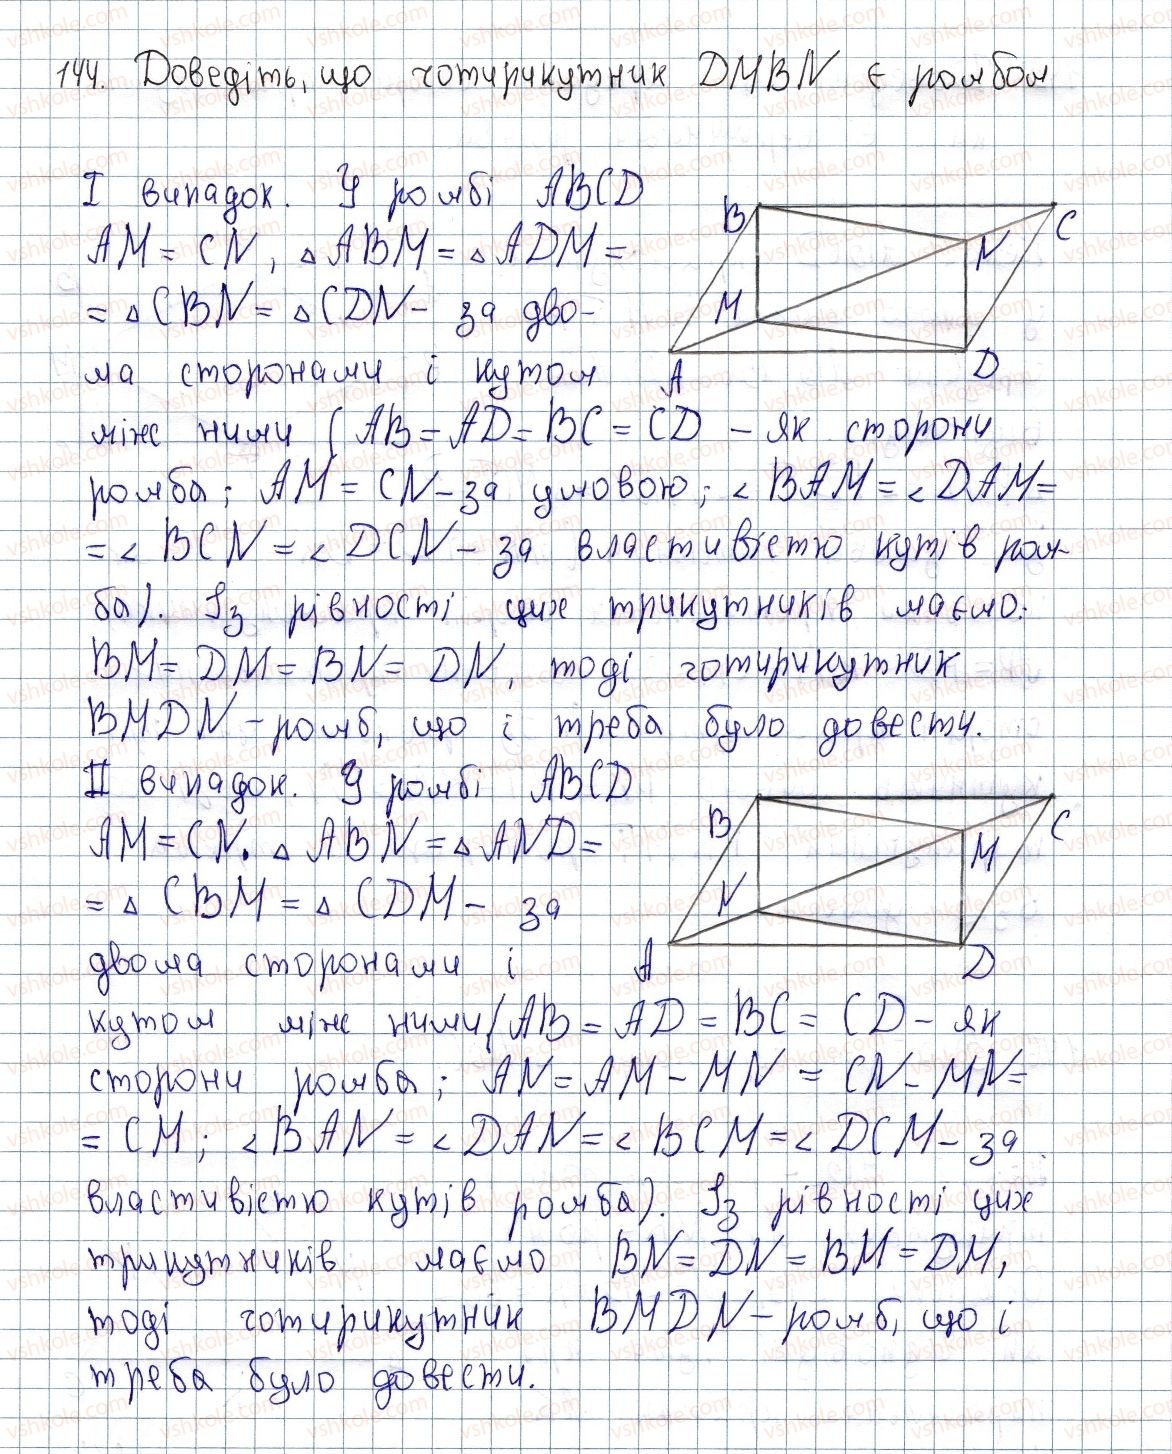 144. Доведіть, що чотирикутник DMBN є ромбом
I випадок. У ромбі ABCD
AM = CN, ▵ ABM = ▵ ADM =
= ▵ CBN = ▵ CDN - за дво-
ма сторонами і кутом
між ними ( AB = AD = BC = CD - як сторони
ромба; AM = CN - за умовою; ∠ BAM = ∠ DAM =
= ∠ BCN = ∠ DCN - за властивістю кутів ром-
ба). Із рівності цих трикутників маємо:
BM = DM = BN = DN, тоді чотирикутник
BMDN - ромб, що і треба було довести.
B
C
N
M
A
D
II випадок. У ромбі ABCD
AM = CN. ▵ ABN = ▵ AND =
= ▵ CBM = ▵ CDM - за
двома сторонами і
кутом між ними ( AB = AD = BC = CD - як
сторони ромба; AN = AM - MN = CN - MN =
= CM; ∠ BAN = ∠ DAN = ∠ BCM = ∠ DCM - за
властивістю кутів ромба). Із рівності цих
трикутників маємо BN = DN = BM = DM,
тоді чотирикутник BMDN - ромб, що і
треба було довести.
B
C
M
N
A
D
vshkole.com